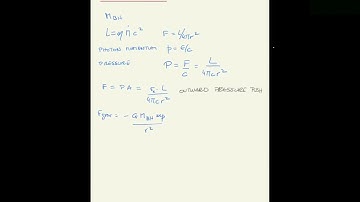 M_BH
L = η ṁ c² F = L/4πr²
PHOTON MOMENTUM p = E/c
PRESSURE P = F/c = L/4πcr²
F = PA = σ_T L/4πcr² OUTWARD PRESSURE PUSH
F_grav = - G M_BH m_p/r²